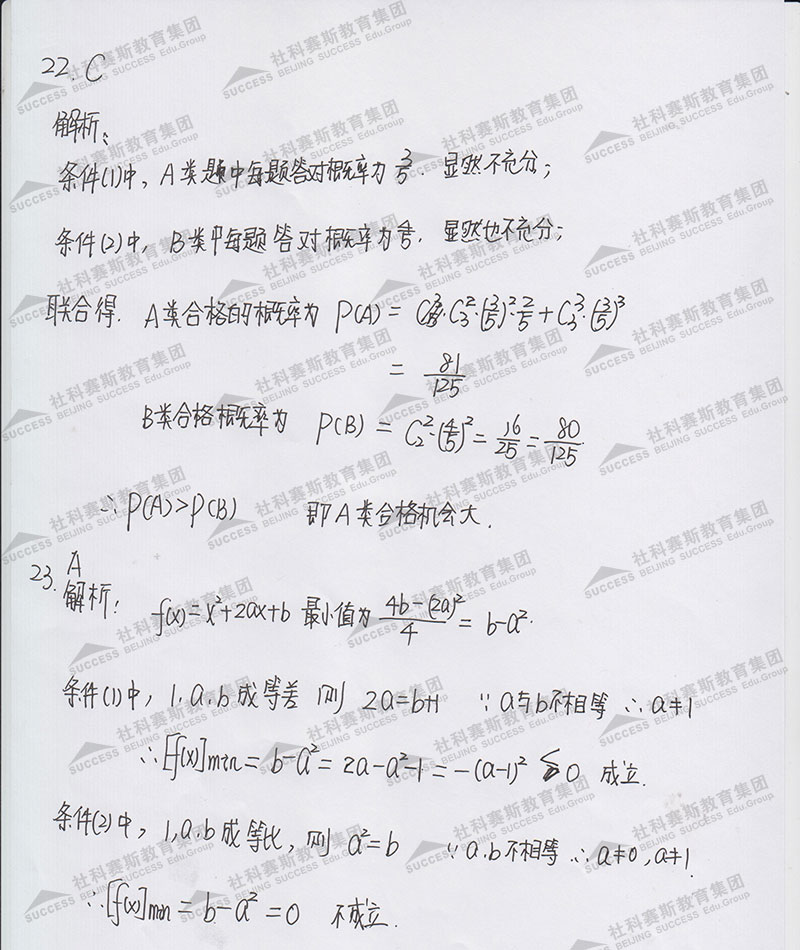 22. C
解析:
条件(1)中, A类题中每题答对概率为 3/5. 显然不充分;
条件(2)中, B类中每题答对概率为 4/5. 显然也不充分;
联合得. A类合格的概率为 P(A) = C₃²·(3/5)²·2/5 + C₃³·(3/5)³
= 81/125
B类合格概率为 P(B) = C₂²·(4/5)² = 16/25 = 80/125.
∴ P(A)>P(B) 即A类合格机会大.
23. A
解析: f(x) = x²+2ax+b 最小值为 (4b-(2a)²)/4 = b-a².
条件(1)中, 1, a, b 成等差 则 2a=b+1 ∵ a与b不相等 ∴ a≠1
∴ [f(x)]min = b-a² = 2a-a²-1 = -(a-1)² < 0 成立.
条件(2)中, 1, a, b 成等比, 则 a²=b ∵ a.b不相等 ∴ a≠0, a≠1.
∴ [f(x)]min = b-a² = 0 不成立.
社科赛斯教育集团
SUCCESS BEIJING SUCCESS Edu.Group